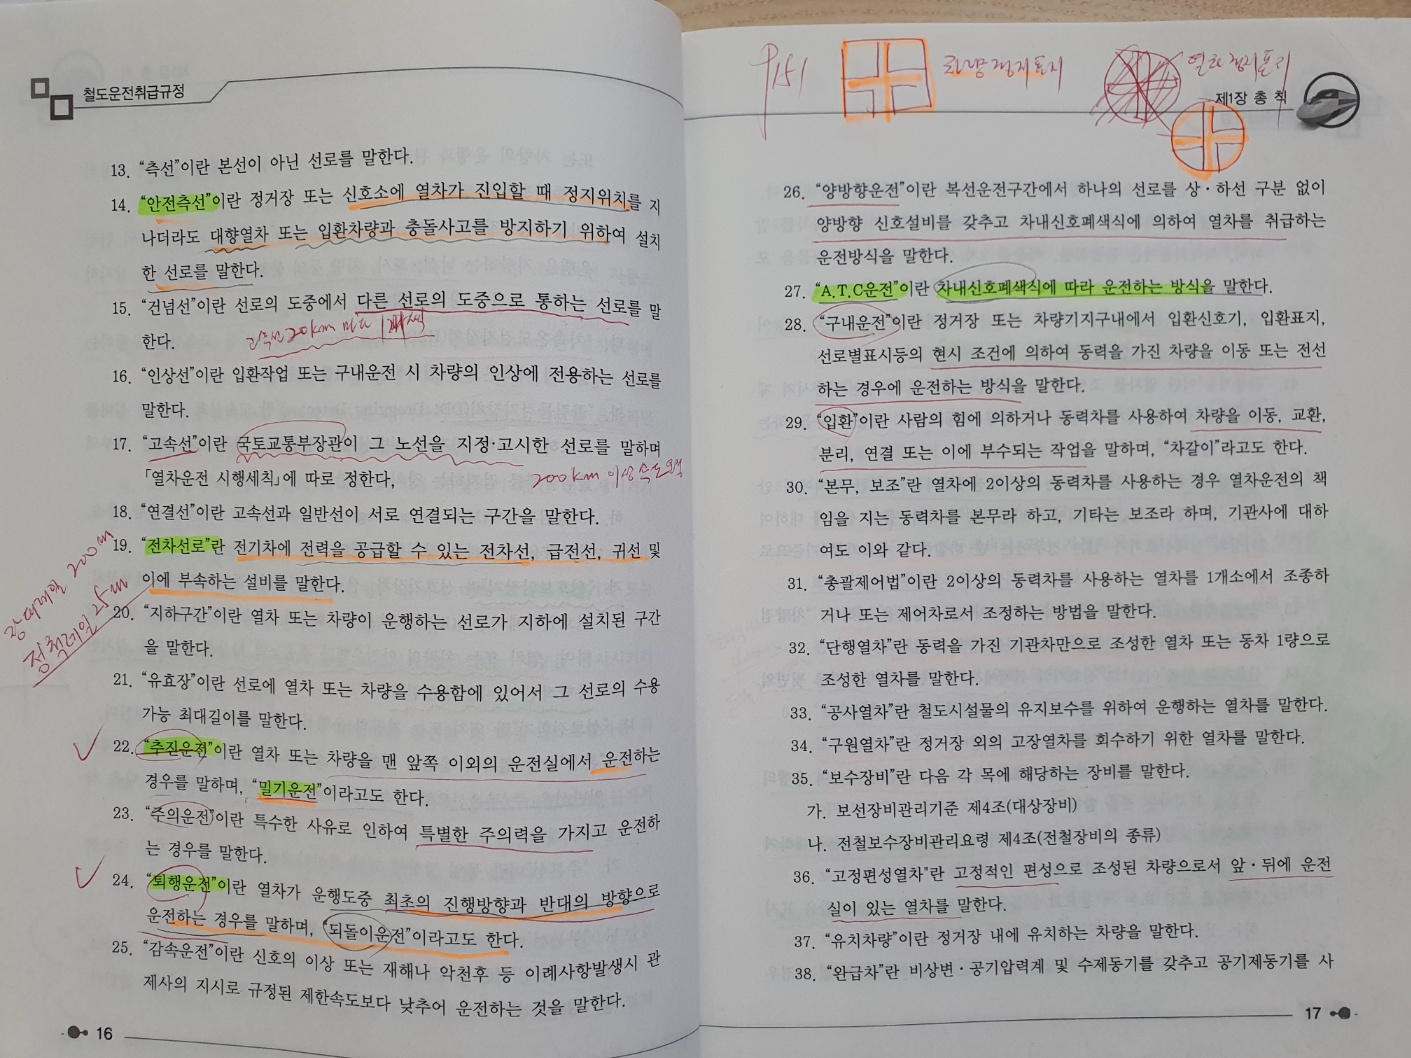 철도운전취급규정
13. “측선”이란 본선이 아닌 선로를 말한다.
14. “안전측선”이란 정거장 또는 신호소에 열차가 진입할 때 정지위치를 지
나더라도 대향열차 또는 입환차량과 충돌사고를 방지하기 위하여 설치
한 선로를 말한다.
15. “건넘선”이란 선로의 도중에서 다른 선로의 도중으로 통하는 선로를 말
한다.
16. “인상선”이란 입환작업 또는 구내운전 시 차량의 인상에 전용하는 선로를
말한다.
17. “고속선”이란 국토교통부장관이 그 노선을 지정·고시한 선로를 말하며
「열차운전 시행세칙」에 따로 정한다.
200km 이상
18. “연결선”이란 고속선과 일반선이 서로 연결되는 구간을 말한다.
19. “전차선로”란 전기차에 전력을 공급할 수 있는 전차선, 급전선, 귀선 및
이에 부속하는 설비를 말한다.
장대레일 200m
정척레일 25m
20. “지하구간”이란 열차 또는 차량이 운행하는 선로가 지하에 설치된 구간
을 말한다.
21. “유효장”이란 선로에 열차 또는 차량을 수용함에 있어서 그 선로의 수용
가능 최대길이를 말한다.
22. “추진운전”이란 열차 또는 차량을 맨 앞쪽 이외의 운전실에서 운전하는
경우를 말하며, “밀기운전”이라고도 한다.
23. “주의운전”이란 특수한 사유로 인하여 특별한 주의력을 가지고 운전하
는 경우를 말한다.
24. “퇴행운전”이란 열차가 운행도중 최초의 진행방향과 반대의 방향으로
운전하는 경우를 말하며, “되돌이운전”이라고도 한다.
25. “감속운전”이란 신호의 이상 또는 재해나 악천후 등 이례사항발생시 관
제사의 지시로 규정된 제한속도보다 낮추어 운전하는 것을 말한다.
16
P151 차량정지표지 열차정지표지
제1장 총 칙
26. “양방향운전”이란 복선운전구간에서 하나의 선로를 상·하선 구분 없이
양방향 신호설비를 갖추고 차내신호폐색식에 의하여 열차를 취급하는
운전방식을 말한다.
27. “A.T.C운전”이란 차내신호폐색식에 따라 운전하는 방식을 말한다.
28. “구내운전”이란 정거장 또는 차량기지구내에서 입환신호기, 입환표지,
선로별표시등의 현시 조건에 의하여 동력을 가진 차량을 이동 또는 전선
하는 경우에 운전하는 방식을 말한다.
29. “입환”이란 사람의 힘에 의하거나 동력차를 사용하여 차량을 이동, 교환,
분리, 연결 또는 이에 부수되는 작업을 말하며, “차갈이”라고도 한다.
30. “본무, 보조”란 열차에 2이상의 동력차를 사용하는 경우 열차운전의 책
임을 지는 동력차를 본무라 하고, 기타는 보조라 하며, 기관사에 대하
여도 이와 같다.
31. “총괄제어법”이란 2이상의 동력차를 사용하는 열차를 1개소에서 조종하
거나 또는 제어차로서 조정하는 방법을 말한다.
32. “단행열차”란 동력을 가진 기관차만으로 조성한 열차 또는 동차 1량으로
조성한 열차를 말한다.
33. “공사열차”란 철도시설물의 유지보수를 위하여 운행하는 열차를 말한다.
34. “구원열차”란 정거장 외의 고장열차를 회수하기 위한 열차를 말한다.
35. “보수장비”란 다음 각 목에 해당하는 장비를 말한다.
가. 보선장비관리기준 제4조(대상장비)
나. 전철보수장비관리요령 제4조(전철장비의 종류)
36. “고정편성열차”란 고정적인 편성으로 조성된 차량으로서 앞·뒤에 운전
실이 있는 열차를 말한다.
37. “유치차량”이란 정거장 내에 유치하는 차량을 말한다.
38. “완급차”란 비상변·공기압력계 및 수제동기를 갖추고 공기제동기를 사
17